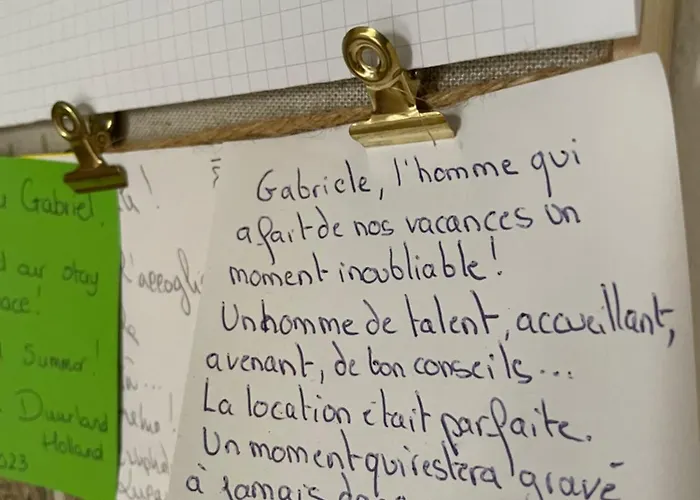 Gabriele, l'homme qui
a fait de nos vacances un
moment inoubliable !
Un homme de talent, accueillant,
avenant, de bon conseils...
La location était parfaite.
Un moment qui restera gravé
à jamais
Gabriel,
our stay
Summer!
Duurland
Holland
023